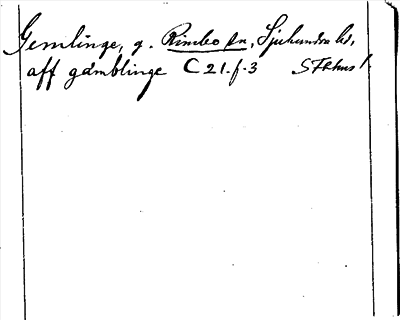 Gemlinge, g. Rimbo sn, Sjuhundra hd,
aff gämblinge C 21.f.3 STRhus 1.